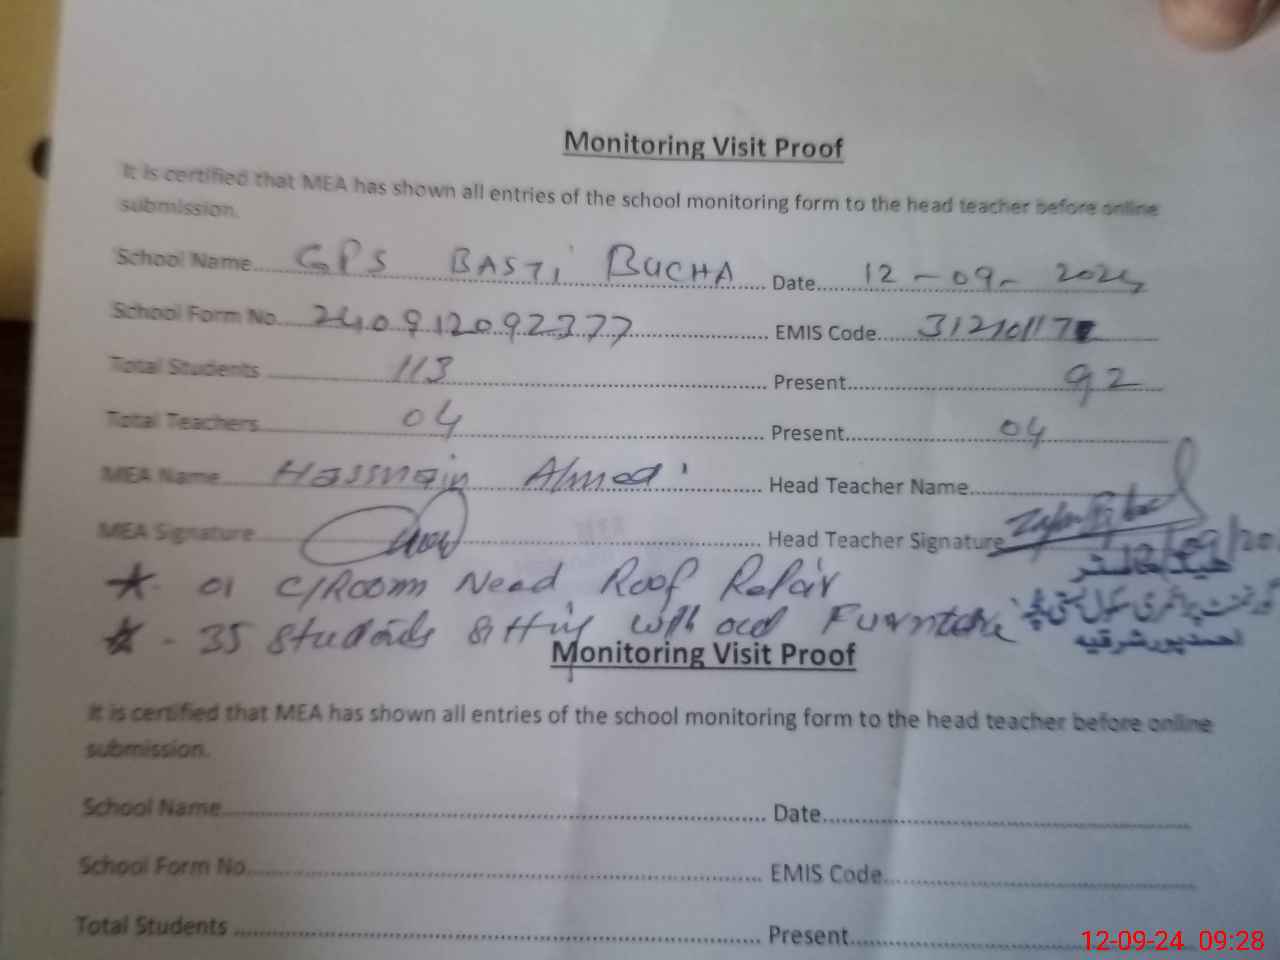 Monitoring Visit Proof
It is certified that MEA has shown all entries of the school monitoring form to the head teacher before online
submission.
School Name GPS BASTI BUCHA Date 12-09-2024
School Form No. 240912092377 EMIS Code
Total Students 113 Present 92
Total Teachers 04 Present 04
MEA Name Hassnain Ahmad Head Teacher Name
MEA Signature Head Teacher Signature
ہیڈ ماسٹر
گورنمنٹ پرائمری سکول بستی
احمدپور شرقیہ
* 01 C/Room Need Roof Repair
* - 35 Students Sitting with old Furniture
Monitoring Visit Proof
It is certified that MEA has shown all entries of the school monitoring form to the head teacher before online
submission.
School Name Date
School Form No. EMIS Code
Total Students Present
12-09-24 09:28